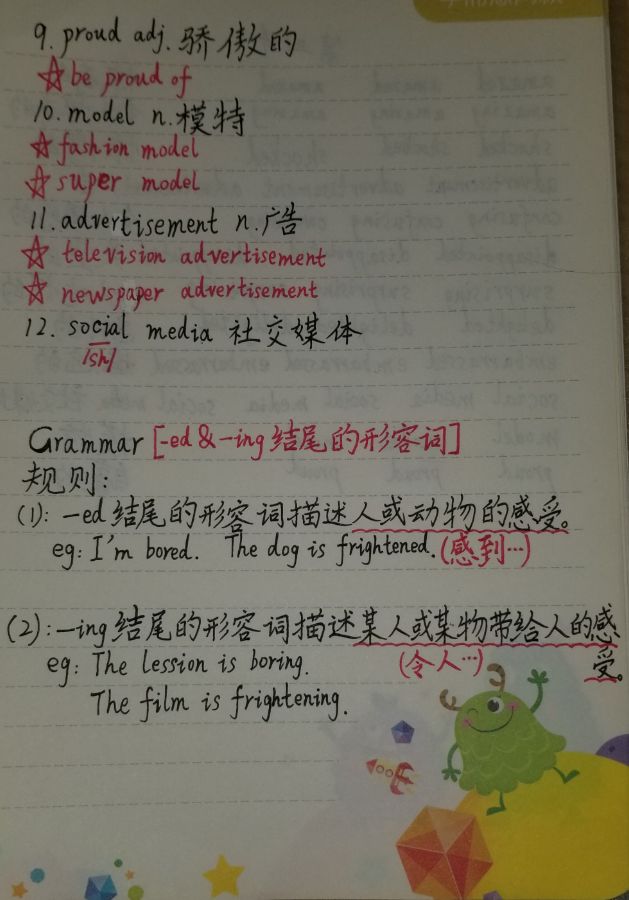 9. proud adj. 骄傲的
☆ be proud of
10. model n. 模特
☆ fashion model
☆ super model
11. advertisement n. 广告
☆ television advertisement
☆ newspaper advertisement
12. social media 社交媒体
/sh/
Grammar [-ed & -ing 结尾的形容词]
规则:
(1): -ed 结尾的形容词描述人或动物的感受。
eg: I'm bored. The dog is frightened. (感到…)
(2): -ing 结尾的形容词描述某人或某物带给人的感
受。
eg: The lession is boring. (令人…)
The film is frightening.